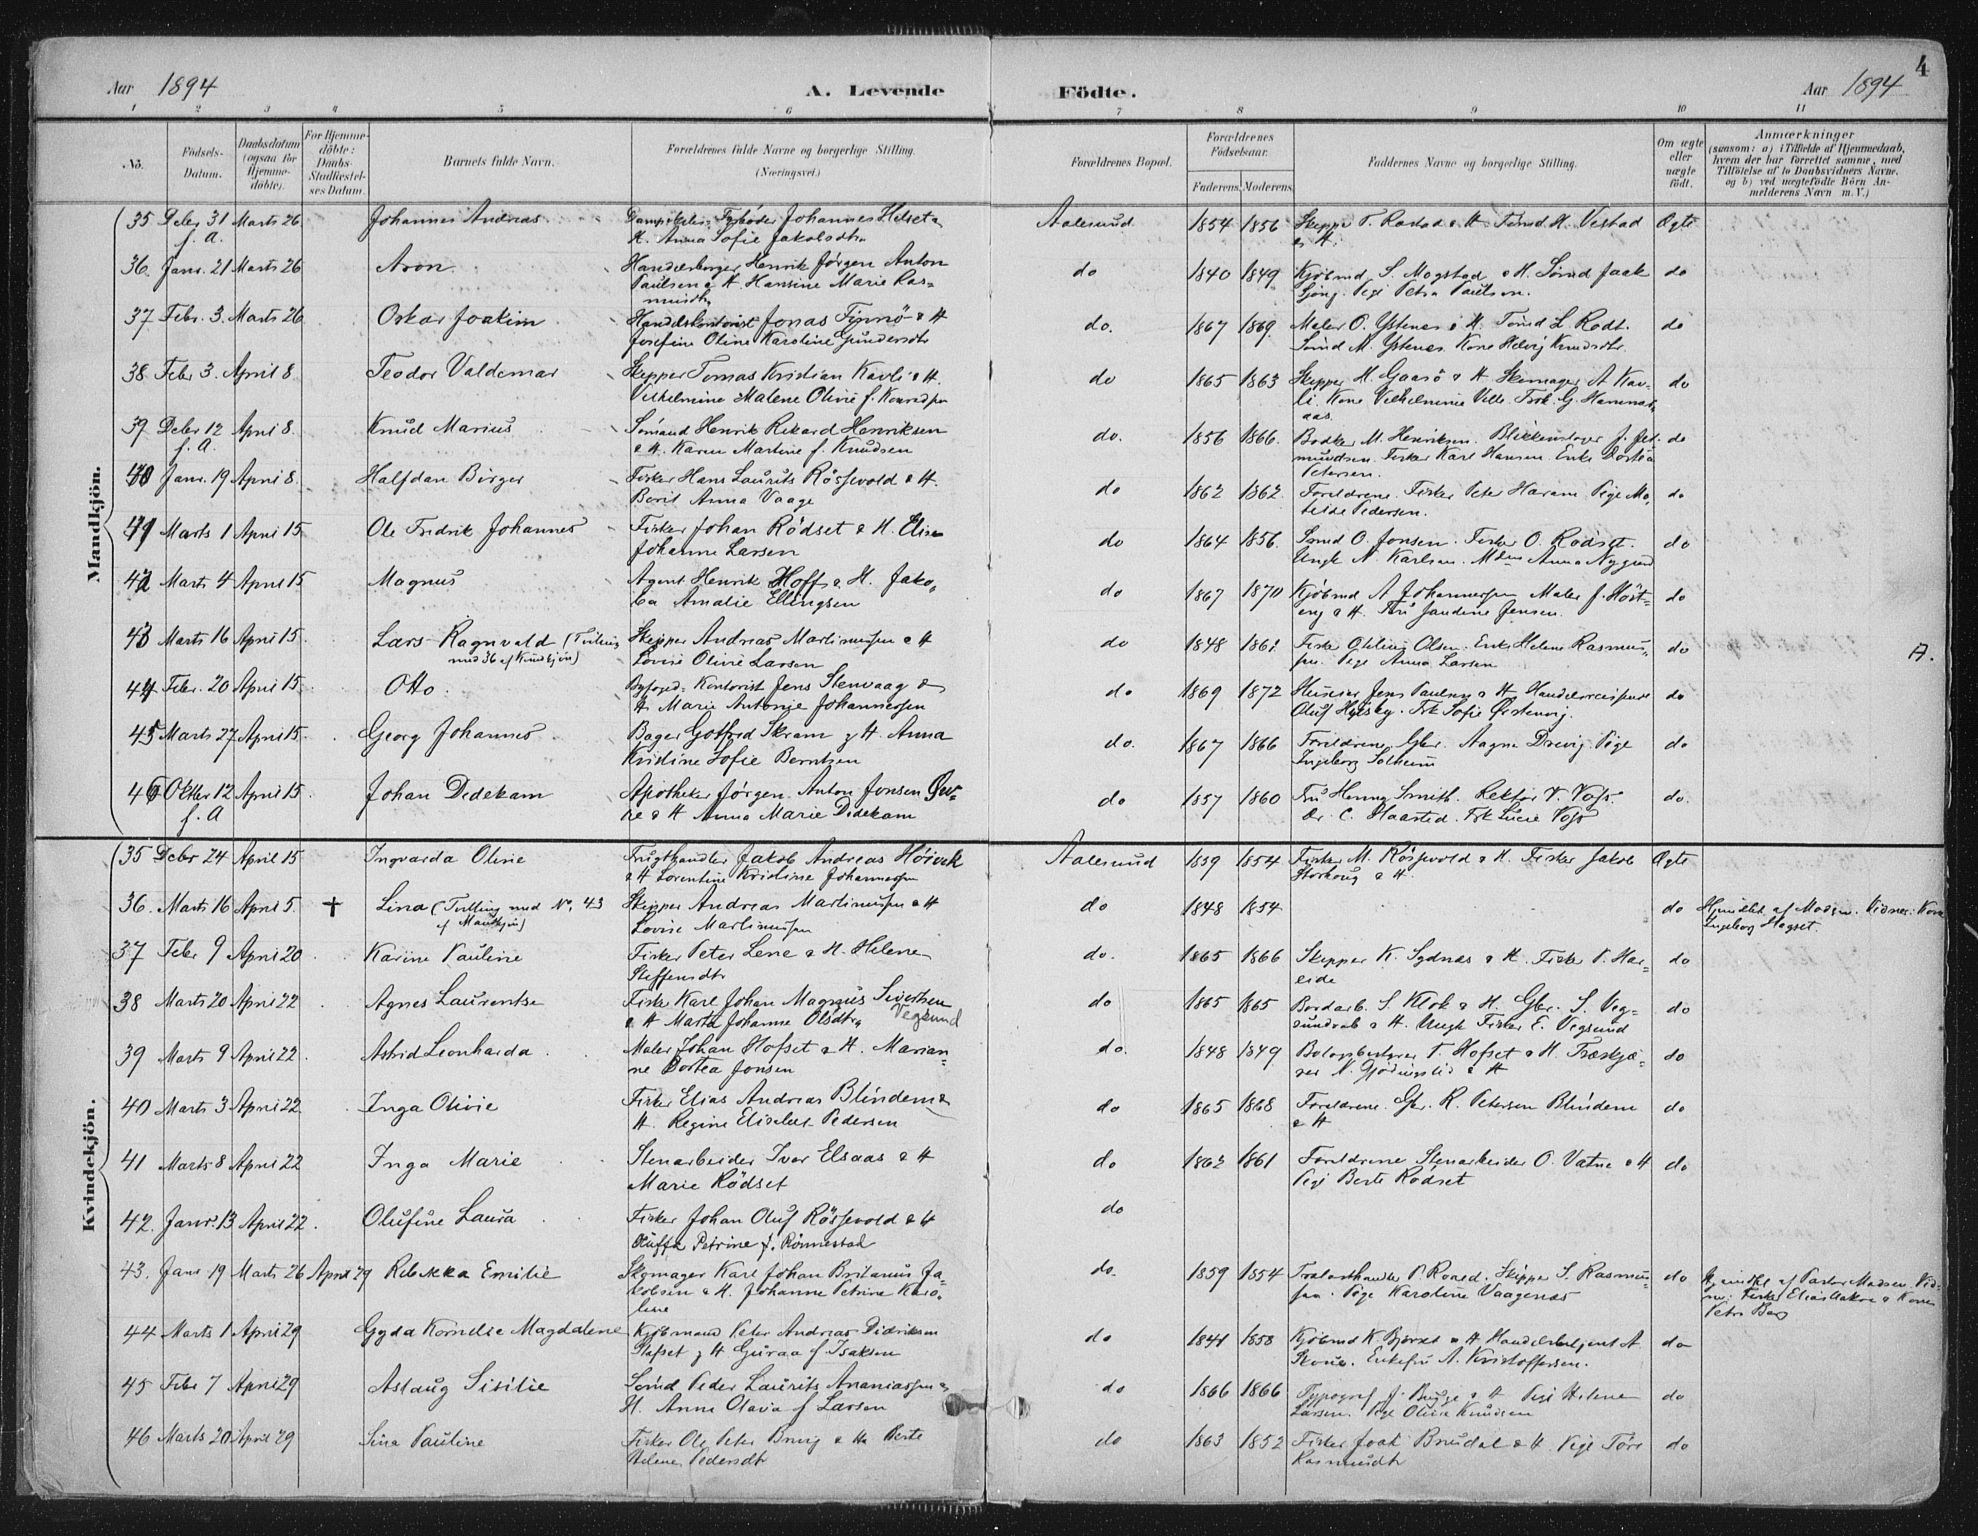 Aar 1894 A. Levende Födte. Aar 1894 4
1 2 3 4 5 6 7 8 9 10 11
No. Födsels-Datum. Daabsdatum (ogsaa for Hjemmedöbte). For Hjemmedöbte: Daabs-Stadfæstelses Datum. Barnets fulde Navn. Forældrenes fulde Navne og borgerlige Stilling. (Næringsvei.) Forældrenes Bopæl. Forældrenes Födselsaar. Faderens. Moderens. Faddernes Navne og borgerlige Stilling. Om ægte eller uægte födt. Anmærkninger (saasom: a) i Tilfælde af Hjemmedaab, hvem der har forrettet samme, med Tilföielse af to Daabsvidners Navne, og b) ved uægtefödte Börn Anmelderens Navn m. V.)
Mandkjön.
35 Decbr 31 Marts 26 Johannes Andreas Johannes Helset & Aalesund 1854 1856 Skipper & H. Vestad Ægte
f. A. H. Anna Sofie Jakobsdtr & H.
36 Janr. 21 Marts 26 Aron Henrik Jørgen Anton do 1840 1849 Kjøbmd S. Mogstad & H. Sömd Jaak do
Paulsen & H. Hansine Marie Ras- Pige Petra Paulsen.
musdtr
37 Febr. 3. Marts 26 Oskar Joakim Handelskontorist Jonas & H do. 1867 1869. Maler O. Ystenes & H. Sömd L. Rødt. do
Josefine Oline Karoline Gundersdtr Sömd M. Ystenes. Kone Helvig Knudsdtr.
38 Febr 3. April 8 Teodor Valdemar Skipper Tomas Kristian Kavli & H. do 1865 1863 Skipper H. Gaasö & H. Skomager A Kav- do
Vilhelmine Malene Olivie f. li. Kone Vilhelmine
39 Decbr 12 April 8. Knud Marius Sömand Henrik Rikard Henriksen do. 1856 1866. Bødker M. Henriksen. Blikkenslager do
f. A. & H. Karen Martine f. Knudsen Fisker Karl Hansen. Enke
Petersen.
40 Janr. 19 April 8. Halfdan Birger Fisker Hans Laurits Rössevold & H. do 1862 1862. Forældrene. Fisker Peter Haram Pige Ma- do
Berit Anna Vaage tilde Pedersen.
41 Marts 1 April 15. Ole Fredrik Johannes Fisker Johan Rödset & H. Elise do 1864 1856. Sömd O. Jonsen. Fisker O. Rødset. do
Johanne Larsen Ungk N. Karlsen. Anna Nygaard
42 Marts 4 April 15 Magnus Agent Henrik Hoff & H. Jako- do 1867 1870 Kjöbmd A Johannessen Maler do
ba Amalie Ellingsen & H. Fru Jensen.
43 Marts 16 April 15. Lars Ragnvald (Tvilling Skipper Andreas Martinussen & H do 1848 Fisker Olsen. Enke Helene Rasmus- do A.
med 36 af Kvindkjön) Lovise Olivie Larsen sen. Pige Anna Larsen
44 Febr. 20 April 15. Otto. Kontorist Jens Stenvaag & do 1869 1872 Jens Paulsen & H do
H. Marie Antonie Johannessen Oluf Frk Sofie
45 Marts 27 April 15. Georg Johannes. Bager Gotfred Skram & H. Anna do. 1867 1866 Forældrene. Gbr. Pige do
Kristine Sofie Berntsen Ingeborg Solheim
46 Oktbr 12 April 15. Johan Dedekam Apotheker Jörgen Anton Jonsen do 1857 1860 Fru Henny Smith. Rektor V. Voss. do.
f. A & H Anna Marie Dedekam Dr. C. Haasted. Frk Lucie Voss
Kvindekjön.
35 Decbr 24 April 15 Ingvarda Olivie Jakob Andreas Aalesund 1859 1854 Fisker M. Rössevold & H. Fisker Jakob Ægte
& H Lorentine Kristine Johannessen & H.
36. Marts 16 April 5. † Lina (Tvilling med No. 43 Skipper Andreas Martinussen & H do 1848 1854 do Hjemdbt af Madsen. Vidner: Kone
af Mandkjön) Lovise Martinussen Ingeborg
37 Febr 9 April 20 Karine Pauline Fisker Peter Lene & H. Helene do. 1865 1866 Skipper K. Sydnæs & H. Fisker P. Har- do
Steffensdtr eide
38 Marts 20 April 22 Agnes Laurentse Fisker Karl Johan Magnus Sivertsen do 1865 1865 Bordarb. S. Klok & H. Gbr. S. Veg- do
& H Marta Johanne Olsdtr, Vegsund & H. Ungk Fisker E. Vegsund
39 Marts 9 April 22. Astrid Leonharda Maler Johan Hofset & H. Marian- do. 1848 1849 T. Hofset & H. do
ne Dortea Jonsen & H
40 Marts 3 April 22 Inga Olivie Fisker Elias Andreas Blindem & do 1865 1868 Forældrene. Gbr. R. Petersen Blindem do
H. Regine Elisabet Pedersen & H
41 Marts 8 April 22 Inga Marie Stenarbeider Ivar Elsaas & H do 1862 1861 Forældrene Stenarbeider O. Vatne & H do
Marie Rödset Pige Berte Rødset
42. Janr. 13 April 22. Olufine Laura Fisker Johan Oluf Rössevold & H do
Oluffa Petrine f. Rønnestad
43. Janr 19 Marts 26 April 29 Rebekka Emilie Skomager Karl Johan Britanus Ja- do. 1859 1854 P. Skipper S. Rasmus- do Hjemdbt af Pastor Madsen. Vid-
kobsen & H. Johanne Petrine Karo- sen. Pige Karoline Vaagenæs ner: Fisker Elias & Kone
line Petra
44 Marts 1 April 29 Gyda Kornelie Magdalene Kjöbmand Peter Andreas Didriksen do 1841 1858 Kjöbmd K. & H Handelsbetjent A do
& H Guraa f. Isaksen Enkefru A. Kristoffersen.
45 Febr 7 April 29 Aslaug Sisilie Sömd Peder Laurits Ananiassen & do 1866 1866 Typograf J. Bugge & H Pige Helene do
H. Anna Olava f Larsen Larsen. Pige Olivia Knudsen
46 Marts 20 April 29 Sina Pauline Fisker Ole Peter & H Berte do 1863 1852 Fisker Brudal & H. Pige do
Helene Pedersdtr Rasmusdtr